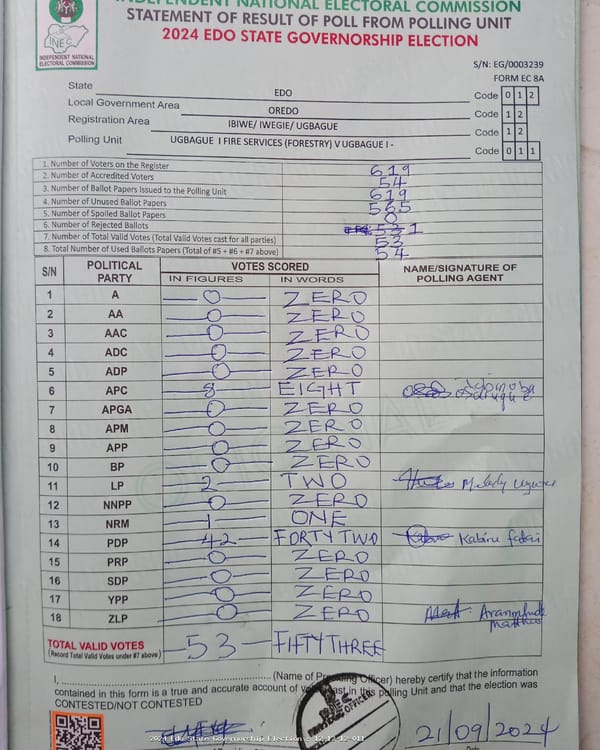 INDEPENDENT NATIONAL ELECTORAL COMMISSION
STATEMENT OF RESULT OF POLL FROM POLLING UNIT
2024 EDO STATE GOVERNORSHIP ELECTION
INEC
INDEPENDENT NATIONAL
ELECTORAL COMMISSION
S/N: EG/0003239
FORM EC 8A
State EDO Code 0 1 2
Local Government Area OREDO Code 1 2
Registration Area IBIWE/ IWEGIE/ UGBAGUE Code 1 2
Polling Unit UGBAGUE I FIRE SERVICES (FORESTRY) V UGBAGUE I - Code 0 1 1
1. Number of Voters on the Register 619
2. Number of Accredited Voters 54
3. Number of Ballot Papers Issued to the Polling Unit 619
4. Number of Unused Ballot Papers 565
5. Number of Spoiled Ballot Papers 0
6. Number of Rejected Ballots 1
7. Number of Total Valid Votes (Total Valid Votes cast for all parties) 53
8. Total Number of Used Ballots Papers (Total of #5 + #6 + #7 above) 54
S/N POLITICAL PARTY VOTES SCORED NAME/SIGNATURE OF POLLING AGENT
IN FIGURES IN WORDS
1 A 0 ZERO
2 AA 0 ZERO
3 AAC 0 ZERO
4 ADC 0 ZERO
5 ADP 0 ZERO
6 APC 8 EIGHT
7 APGA 0 ZERO
8 APM 0 ZERO
9 APP 0 ZERO
10 BP 0 ZERO
11 LP 2 TWO
12 NNPP 0 ZERO
13 NRM 1 ONE
14 PDP 42 FORTY TWO Kabiru
15 PRP 0 ZERO
16 SDP 0 ZERO
17 YPP 0 ZERO
18 ZLP 0 ZERO
TOTAL VALID VOTES 53 FIFTY THREE
(Record Total Valid Votes under #7 above)
I, (Name of Presiding Officer) hereby certify that the information
contained in this form is a true and accurate account of votes cast in this polling Unit and that the election was
CONTESTED/NOT CONTESTED
21/09/2024
2024 Edo State Governorship Election - 12-12-12-011
Date